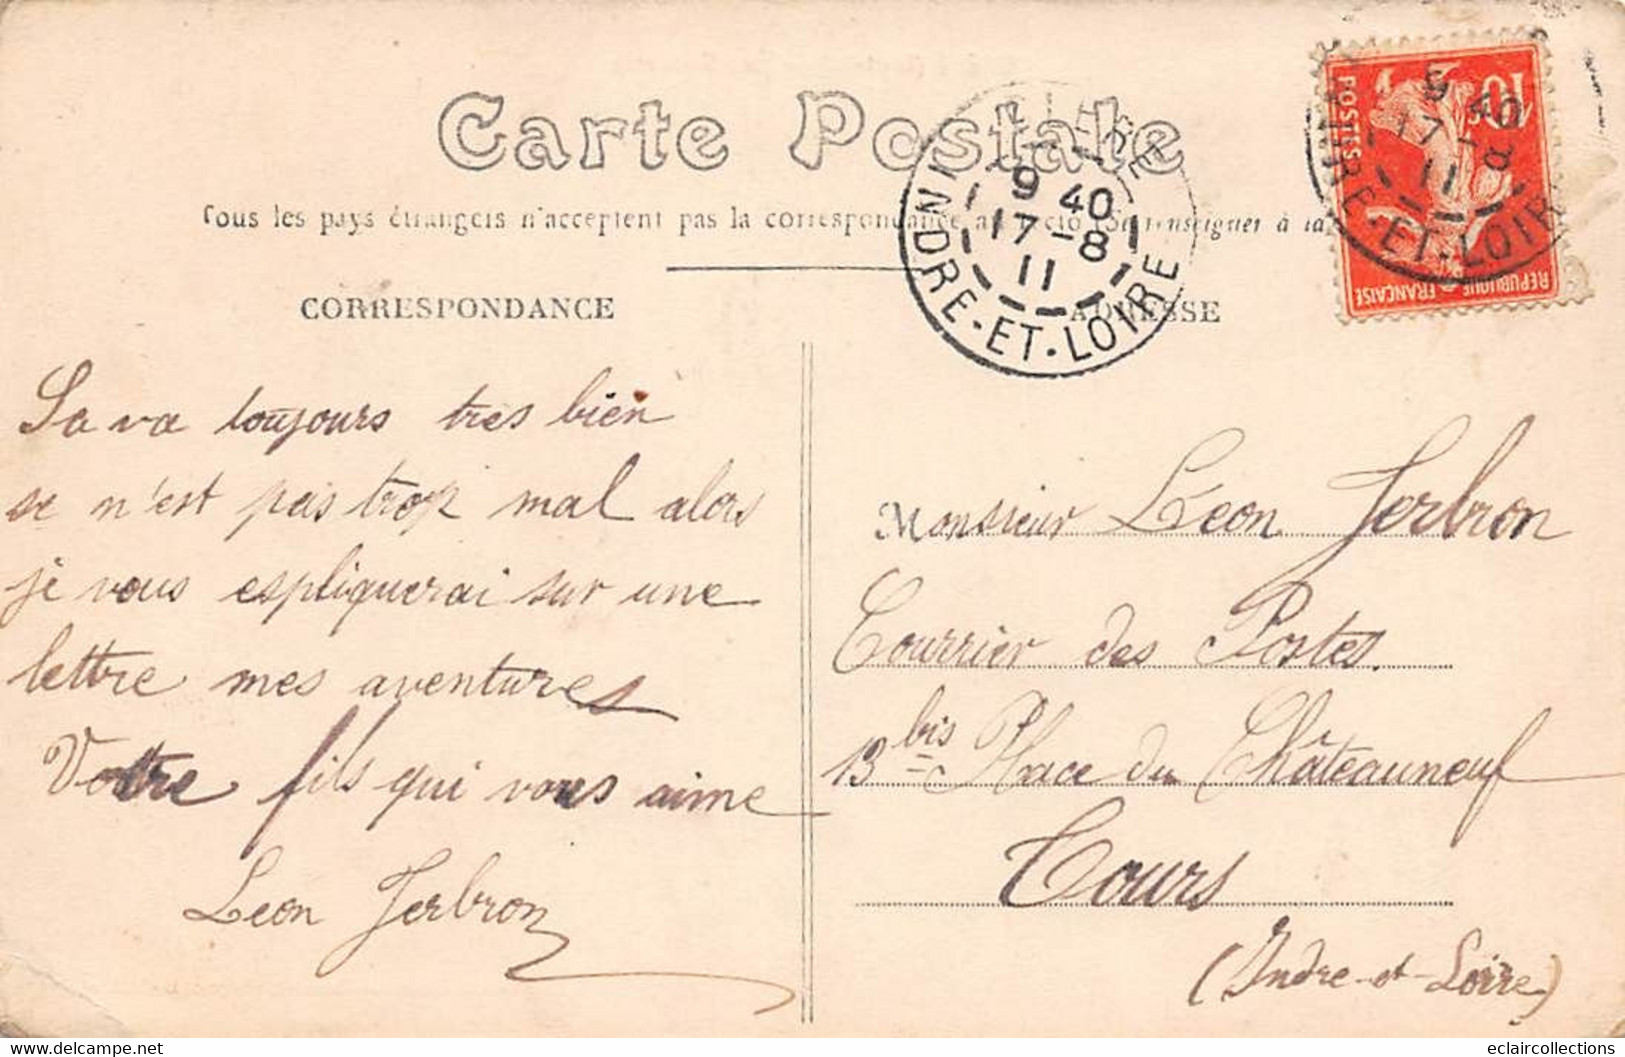 Carte Postale
Tous les pays étrangers n'acceptent pas la correspondance au recto (Se renseigner à la
CORRESPONDANCE
ADRESSE
9 40
17-8
11
INDRE-ET-LOIRE
9 40
17-8
11
INDRE-ET-LOIRE
10c
POSTES
REPUBLIQUE FRANÇAISE
Sa va toujours tres bien
se n'est pas trop mal alors
je vous espliquerai sur une
lettre mes aventures
Votre fils qui vous aime
Leon Jerbron
Monsieur Léon Jerbron
Courrier des Postes
13 bis Place du Châteauneuf
Tours
(Indre-et-Loire)
www.delcampe.net
eclaircollections